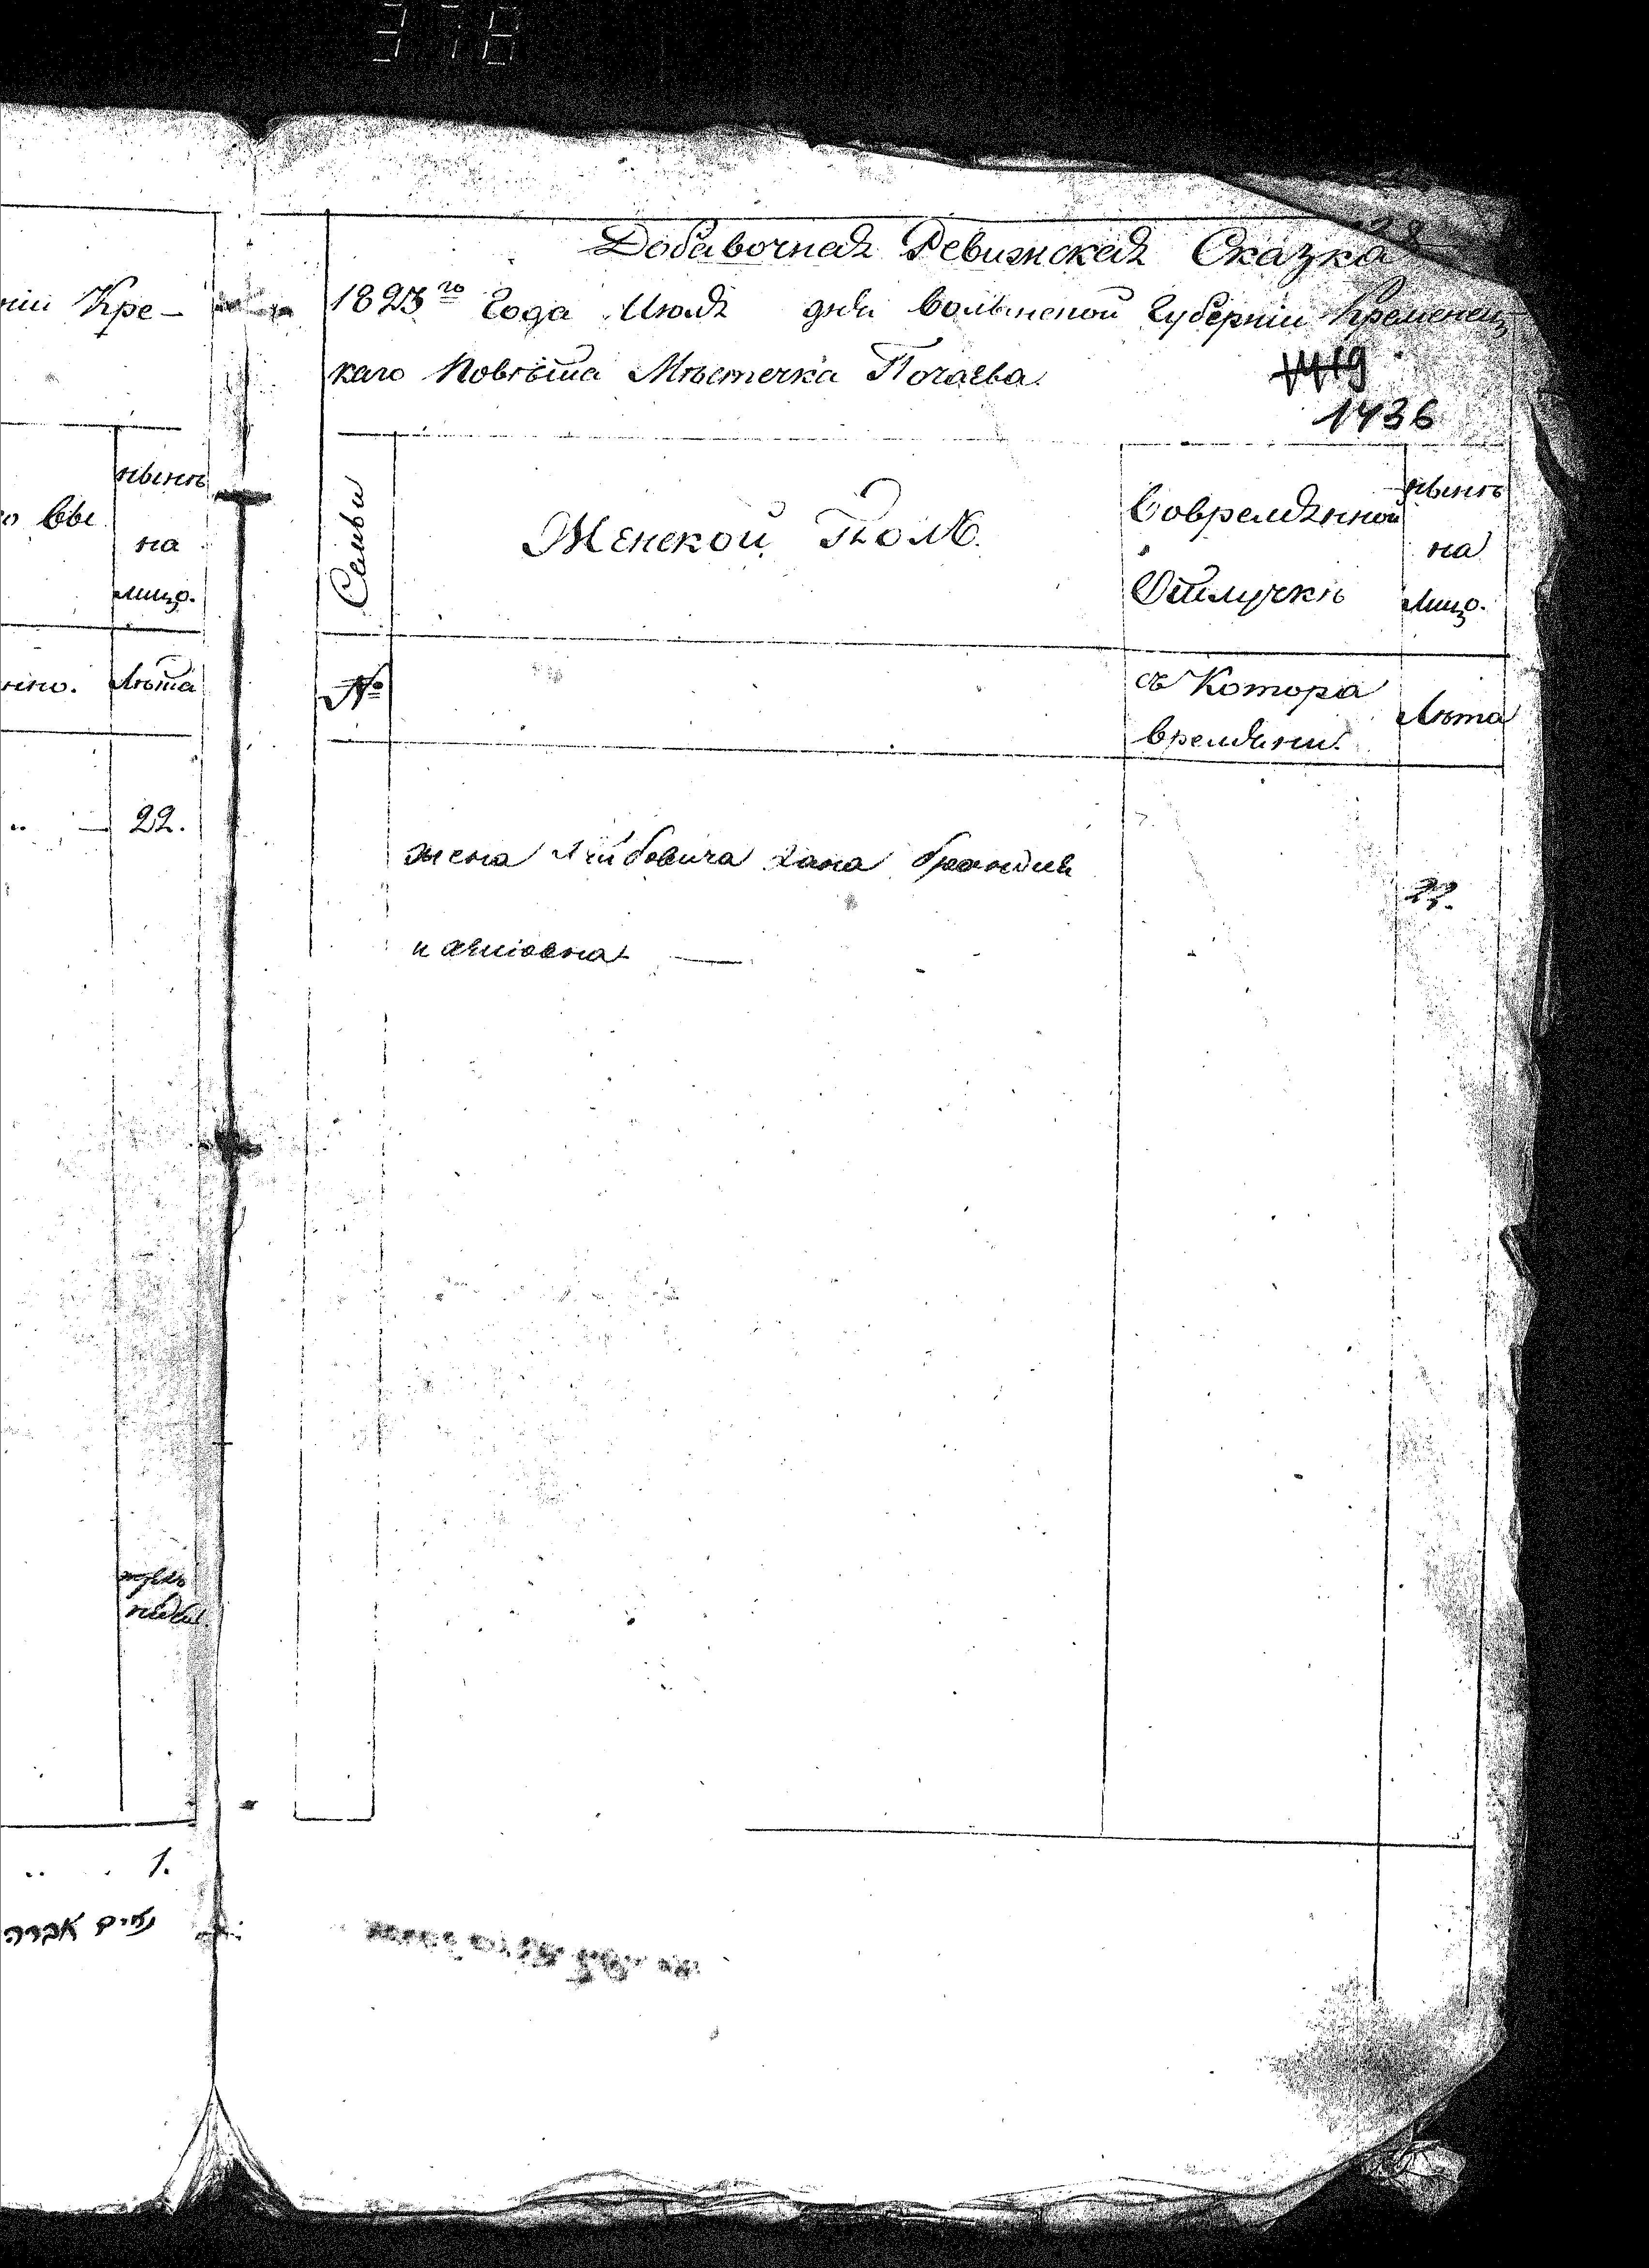 378
нiи Кре-
о ввы
нынѣ
на
лицо.
Лѣта
22.
1.
Добавочная Ревизская Сказка
1823го Года Июля дня Волынской Губернiи Кременец
каго Повѣта Мѣстечка Почаева
1419
1436
Семьи
Женской Полъ.
Вовремянной
Отлучкѣ
нынѣ
на
Лицо.
№
съ Котора
времяни.
Лѣта
жена Лейбовича хана
22.